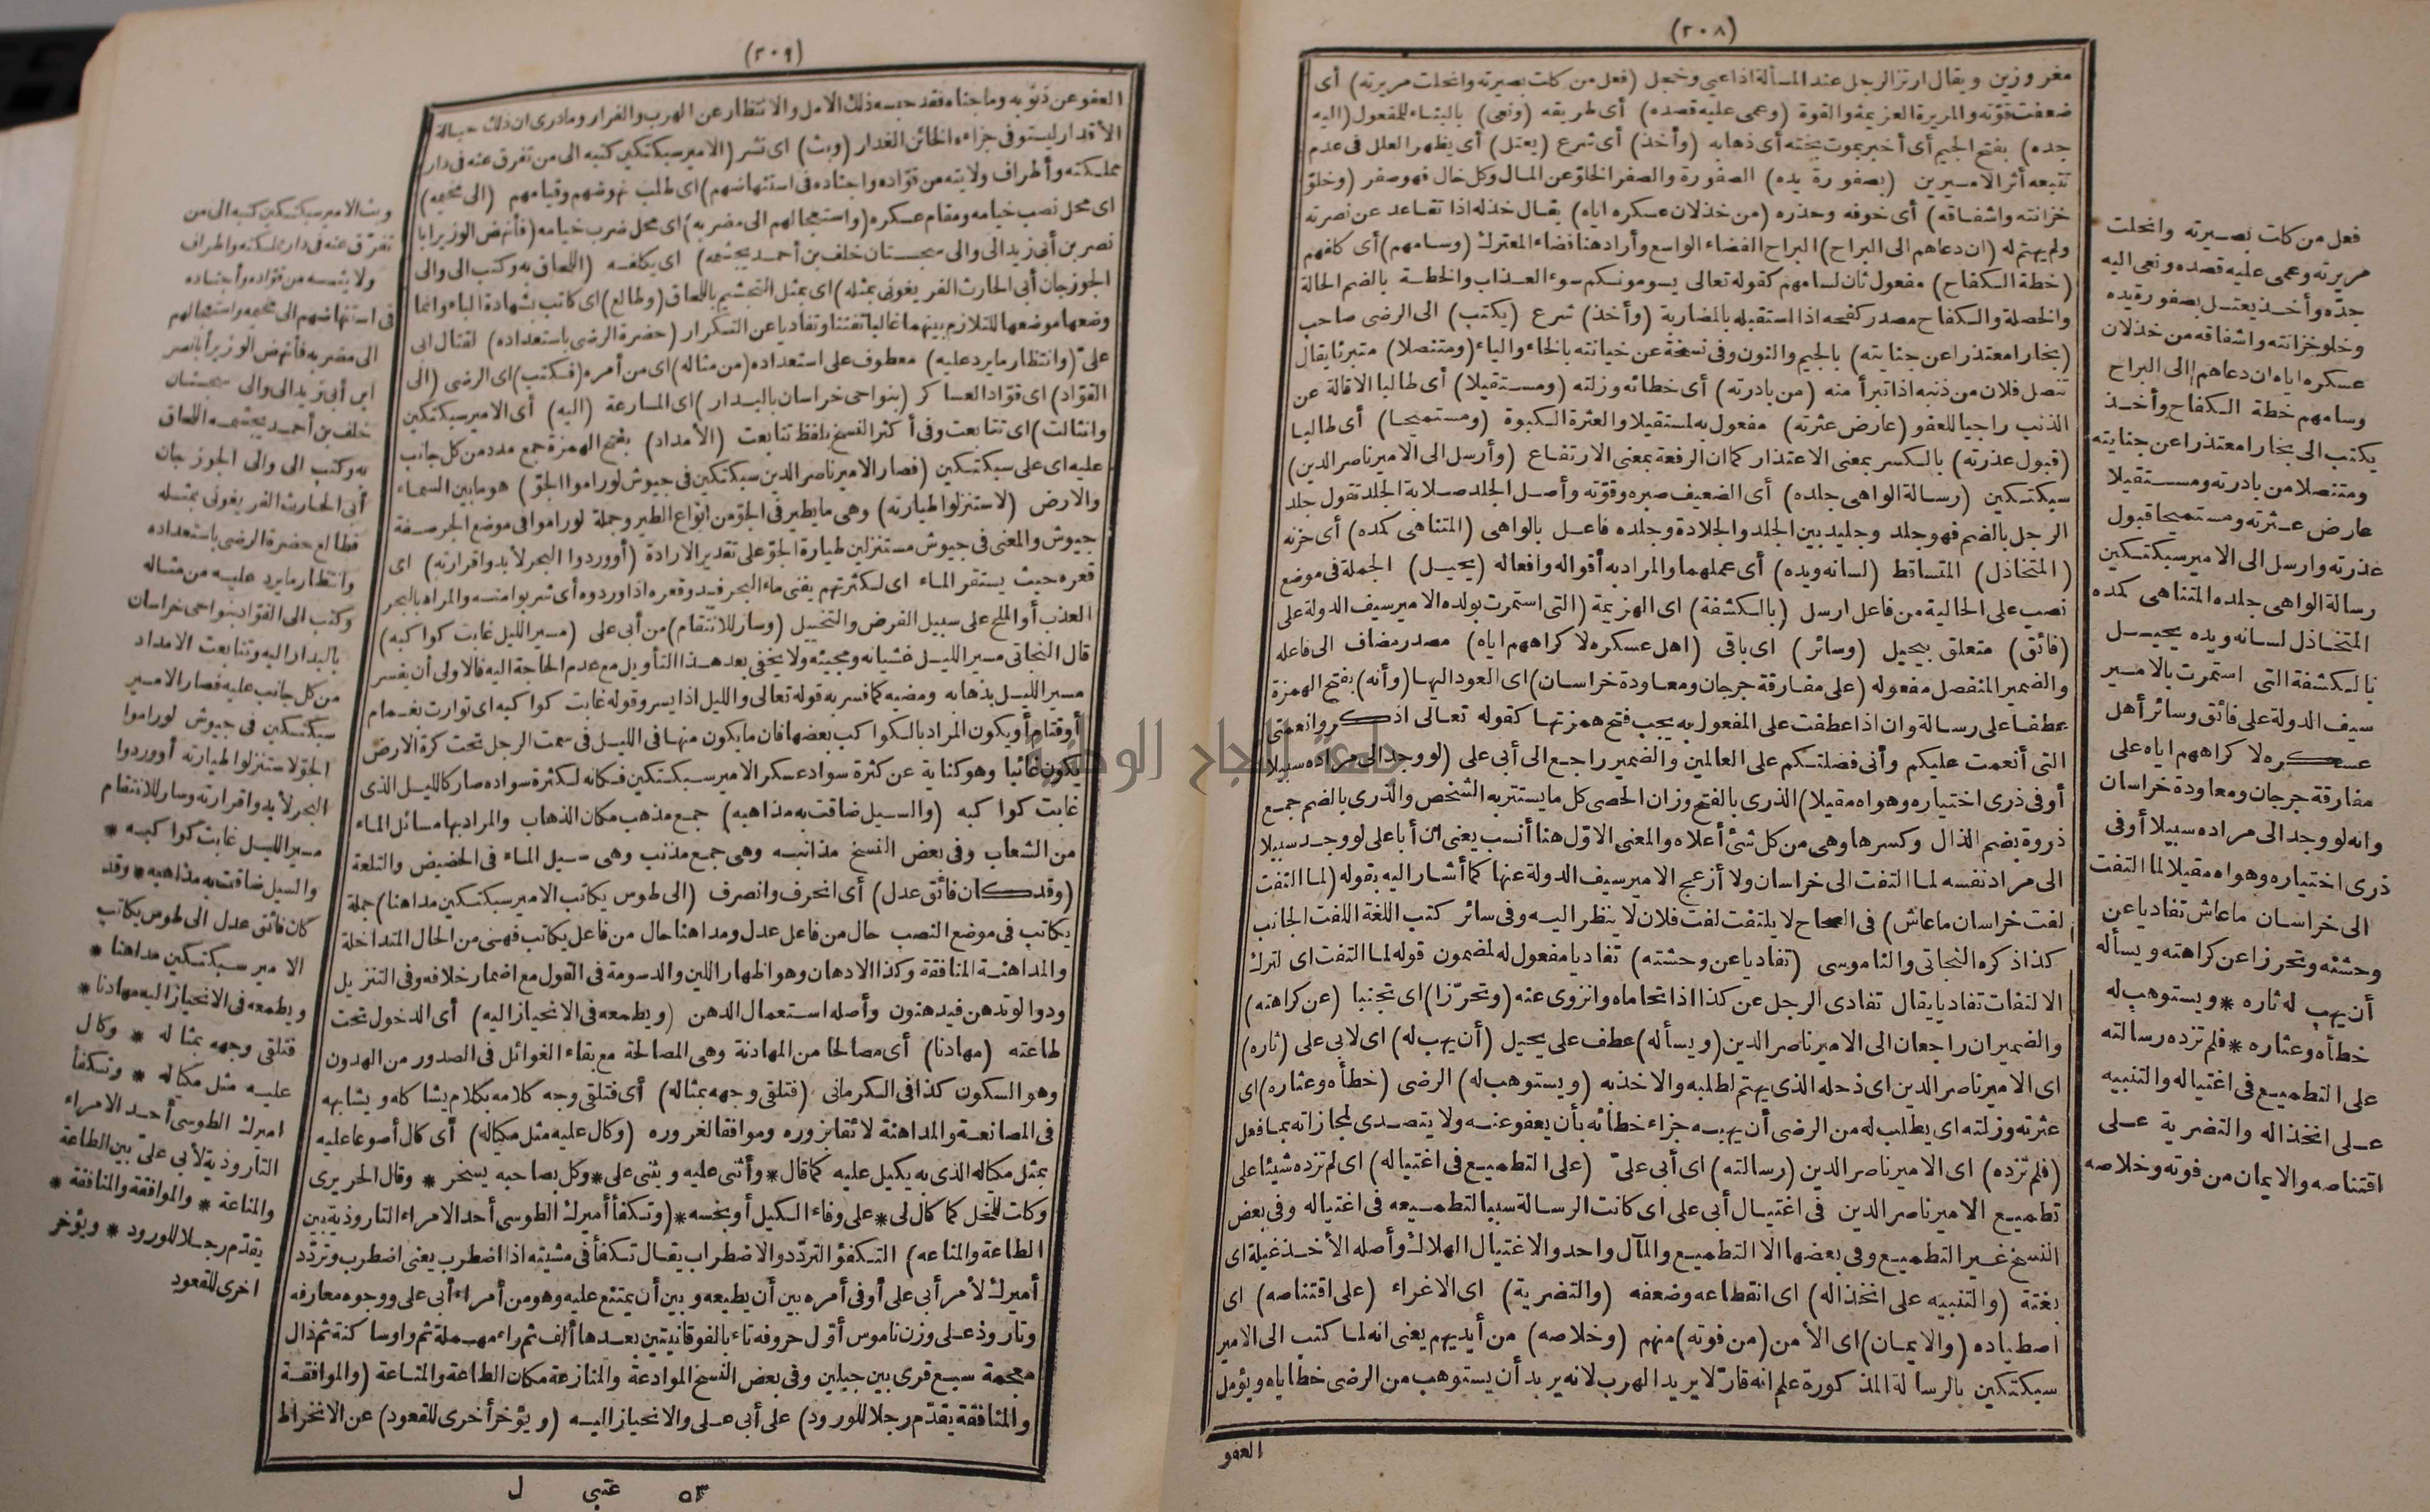 (٢٠٨)
مغروزين ويقال ارتز الرجل عند المسألة اذا عيى وخجل (فعل من كلت بصيرته وانحلت مريرته) أى
ضعفت قوّته والمريرة العزيمة والقوة (وعمى عليه قصده) أى طريقه (ونعى) بالبناء للمفعول (اليه
جده) بفتح الجيم أى أخبر بموت بخته أى ذهابه (وأخذ) أى شرع (يعتل) أى يظهر العلل فى عدم
تتبعه أثر الاميرين (بصفورة يده) الصفورة والصفر الخلوّ عن المال وكل خال فهو صفر (وخلوّ
خزانته واشفاقه) أى خوفه وحذره (من خذلان عسكره اياه) يقال خذله اذا تقاعد عن نصرته
ولم يهتم له (ان دعاهم الى البراح) البراح الفضاء الواسع وأراد هنا فضاء المعترك (وسامهم) أى كلفهم
(خطة الكفاح) مفعول ثان لسامهم كقوله تعالى يسومونكم سوء العذاب والخطة بالضم الحالة
والخصلة والكفاح مصدر كفحه اذا استقبله بالمضاربة (وأخذ) شرع (يكتب) الى الرضى صاحب
(بخارا معتذرا عن جنايته) بالجيم والنون وفى نسخة عن خيانته بالخاء والياء (ومتنصلا) متبرئا يقال
تنصل فلان من ذنبه اذا تبرأ منه (من بادرته) أى خطائه وزلته (ومستقيلا) أى طالبا الاقالة عن
الذنب راجيا للعفو (عارض عثرته) مفعول به لمستقيلا والعثرة الكبوة (ومستميحا) أى طالبا
(قبول عذرته) بالكسر بمعنى الاعتذار كما ان الرفعة بمعنى الارتفاع (وأرسل الى الامير ناصر الدين)
سبكتكين (رسالة الواهى جلده) أى الضعيف صبره وقوّته وأصل الجلد صلابة الجلد تقول جلد
الرجل بالضم فهو جلد وجليد بين الجلد والجلادة وجلده فاعل بالواهى (المتناهى كمده) أى حزنه
(المتخاذل) المتساقط (لسانه ويده) أى عملهما والمراد به أقواله وافعاله (يحيل) الجملة فى موضع
نصب على الحالية من فاعل ارسل (بالكشفة) اى الهزيمة (التى استمرت بولده الامير سيف الدولة على
(فائق) متعلق بيحيل (وسائر) اى باقى (اهل عسكره لا كراههم اياه) مصدر مضاف الى فاعله
والضمير المنفصل مفعوله (على مفارقة جرجان ومعاودة خراسان) اى العود اليها (وأنه) بفتح الهمزة
عطفا على رسالة وان اذا عطفت على المفعول به يجب فتح همزتها كقوله تعالى اذكروا نعمتى
التى أنعمت عليكم وأنى فضلتكم على العالمين والضمير راجع الى أبى على (لو وجد الى مراده سبيلا
أوفى ذرى اختياره وهواه مقيلا) الذرى بالفتح وزان الحصى كل ما يستتر به الشخص والذرى بالضم جمع
ذروة بضم الذال وكسرها وهى من كل شئ أعلاه والمعنى الاوّل هنا أنسب يعنى ان أبا على لو وجد سبيلا
الى مراد نفسه لما التفت الى خراسان ولا أزعج الامير سيف الدولة عنها كما أشار اليه بقوله (لما التفت
لفت خراسان ما عاش) فى الصحاح لا يلتفت لفت فلان لا ينظر اليه وفى سائر كتب اللغة اللفت الجانب
كذا ذكره النجاتى والناموسى (تفاديا عن وحشته) تفاديا مفعول له لمضمون قوله لما التفت اى لترك
الالتفات تفاديا يقال تفادى الرجل عن كذا اذا تحاماه وانزوى عنه (وتحرّزا) اى تجنبا (عن كراهته)
والضميران راجعان الى الامير ناصر الدين (ويسأله) عطف على يحيل (أن يهب له) اى لابى على (ثاره)
اى الامير ناصر الدين اى ذحله الذى يهتم لطلبه والاخذ به (ويستوهب له) الرضى (خطأه وعثاره) اى
عثرته وزلته اى يطلب له من الرضى أن يهبه جزاء خطائه بأن يعفو عنه ولا يتصدى لمجازاته بما فعل
(فلم تزده) اى الامير ناصر الدين (رسالته) اى أبى علىّ (على التطميع فى اغتياله) اى لم تزده شيئا على
تطميع الامير ناصر الدين فى اغتيال أبى على اى كانت الرسالة سببا لتطميعه فى اغتياله وفى بعض
النسخ غير التطميع وفى بعضها الا التطميع والمآل واحد والاغتيال الهلاك وأصله الأخذ غيلة اى
بغتة (والتنبيه على انخذاله) اى انقطاعه وضعفه (والتضرية) اى الاغراء (على اقتناصه) اى
اصطياده (والايمان) اى الأمن (من فوته) منهم (وخلاصه) من أيديهم يعنى انه لما كتب الى الامير
سبكتكين بالرسالة المذكورة علم انه قارّ لا يريد الهرب لانه يريد أن يستوهب من الرضى خطاياه ويؤمل
العفو
فعل من كلت بصيرته وانحلت
مريرته وعمى عليه قصده ونعى اليه
جدّه وأخذ يعتل بصفورة يده
وخلو خزانته واشفاقه من خذلان
عسكره اياه ان دعاهم الى البراح
وسامهم خطة الكفاح وأخذ
يكتب الى بخارا معتذرا عن جنايته
ومتنصلا من بادرته ومستقيلا
عارض عثرته ومستميحا قبول
عذرته وارسل الى الامير سبكتكين
رسالة الواهى جلده المتناهى كمده
المتخاذل لسانه ويده يحيل
بالكشفة التى استمرت بالامير
سيف الدولة على فائق وسائر أهل
عسكره لا كراههم اياه على
مفارقة جرجان ومعاودة خراسان
وانه لو وجد الى مراده سبيلا أوفى
ذرى اختياره وهواه مقيلا لما التفت
الى خراسان ما عاش تفاديا عن
وحشته وتحرزا عن كراهته ويسأله
أن يهب له ثاره * ويستوهب له
خطأه وعثاره * فلم تزده رسالته
على التطميع فى اغتياله والتنبيه
على انخذاله والتضرية على
اقتناصه والايمان من فوته وخلاصه
(٢٠٩)
العفو عن ذنوبه وما جناه فقد حبسه ذلك الامل والانتظار عن الهرب والفرار وما درى ان ذلك حبالة
الأقدار ليستوفى جزاء الخائن الغدار (وبث) اى نشر (الامير سبكتكين كتبه الى من تفرق عنه فى دار
مملكته وأطراف ولايته من قوّاده واجناده فى استنهاضهم) اى طلب نهوضهم وقيامهم (الى مخيمه)
اى محل نصب خيامه ومقام عسكره (واستعجالهم الى مضربه) اى محل ضرب خيامه (فأنهض الوزير ابا
نصر بن أبى زيد الى والى سجستان خلف بن أحمد يجشمه) اى يكلفه (اللحاق به وكتب الى والى
الجوزجان أبى الحارث الفريغونى بمثله) اى بمثل التجشيم باللحاق (وطالع) اى كاتب بشهادة الباء وانما
وضعها موضعها للتلازم بينهما غالبا تفننا وتفاديا عن التكرار (حضرة الرضى باستعداده) لقتال ابى
علىّ (وانتظار ما يرد عليه) معطوف على استعداده (من مثاله) اى من أمره (فكتب) اى الرضى (الى
القوّاد) اى قوّاد العساكر (بنواحى خراسان بالبدار) اى المسارعة (اليه) أى الامير سبكتكين
(وانثالت) اى تتابعت وفى أكثر النسخ بلفظ تتابعت (الأمداد) بفتح الهمزة جمع مدد من كل جانب
عليه اى على سبكتكين (فصار الامير ناصر الدين سبكتكين فى جيوش لو راموا الجوّ) هو ما بين السماء
والارض (لاستنزلوا طيارته) وهى ما يطير فى الجوّ من انواع الطير وجملة لو راموا فى موضع الجر صفة
جيوش والمعنى فى جيوش مستنزلين طيارة الجوّ على تقدير الارادة (أو وردوا البحر لأبدوا قرارته) اى
قعره حيث يستقر الماء اى لكثرتهم يفنى ماء البحر فيبدو قعره اذا وردوه أى شربوا منه والمراد بالبحر
العذب أو الملح على سبيل الفرض والتخييل (وسار للانتقام) من أبى على (مسير الليل غابت كواكبه)
قال النجاتى مسير الليل غشيانه ومجيئه ولا يخفى بعد هذا التأويل مع عدم الحاجة اليه فالاولى أن يفسر
مسير الليل بذهابه ومضيه كما فسر به قوله تعالى والليل اذا يسر وقوله غابت كواكبه اى توارت بغمام
أو قتام أو يكون المراد بالكواكب بعضها فان ما يكون منها فى الليل فى سمت الرجل تحت كرة الارض
يكون غائبا وهو كناية عن كثرة سواد عسكر الامير سبكتكين فكانه لكثرة سواده صار كالليل الذى
غابت كواكبه (والسيل ضاقت به مذاهبه) جمع مذهب مكان الذهاب والمراد بها مسائل الماء
من الشعاب وفى بعض النسخ مذانبه وهى جمع مذنب وهى سيل الماء فى الحضيض والتلعة
(وقد كان فائق عدل) أى انحرف وانصرف (الى طوس يكاتب الامير سبكتكين مداهنا) جملة
يكاتب فى موضع النصب حال من فاعل عدل ومداهنا حال من فاعل يكاتب فهى من الحال المتداخلة
والمداهنة المنافقة وكذا الادهان وهو اظهار اللين والدسومة فى القول مع اضمار خلافه وفى التنزيل
ودوا لو تدهن فيدهنون وأصله استعمال الدهن (ويطمعه فى الانحياز اليه) أى الدخول تحت
طاعته (مهادنا) أى مصالحا من المهادنة وهى المصالحة مع بقاء الغوائل فى الصدور من الهدون
وهو السكون كذا فى الكرمانى (فتلقى وجهه بمثاله) أى فتلقى وجه كلامه بكلام يشاكله ويشابهه
فى المصانعة والمداهنة لائقا بزوره وموافقا لغروره (وكال عليه مثل مكياله) أى كال أصوعا عليه
بمثل مكاله الذى به يكيل عليه كما قال * وأثنى عليه ويثنى على * وكل بصاحبه يسخر * وقال الحريرى
وكلت للخل كما كال لى * على وفاء الكيل أو بخسه * (وتكفأ أميرك الطوسى أحد الامراء التاروذية بين
الطاعة والمناعه) التكفؤ التردّد والاضطراب يقال تكفأ فى مشيته اذا اضطرب يعنى اضطرب وتردّد
أميرك لأمر أبى على أو فى أمره بين أن يطيعه وبين أن يمتنع عليه وهو من أمراء أبى على ووجوه معارفه
وتاروذ على وزن ناموس أوّل حروفه تاء بالفوقانيتين بعدها ألف ثم راء مهملة ثم واو ساكنة ثم ذال
معجمة سبع قرى بين جبلين وفى بعض النسخ الموادعة والمنازعة مكان الطاعة والمناعة (والموافقة
والمنافقة يقدّم رجلا للورود) على أبى على والانحياز اليه (ويؤخر أخرى للقعود) عن الانخراط
وبث الامير سبكتكين كتبه الى من
تفرّق عنه فى دار مملكته واطراف
ولايته من قوّاده وأجناده
فى استنهاضهم الى مخيمه واستعجالهم
الى مضربه فأنهض الوزير أبا نصر
ابن أبى زيد الى والى سجستان
خلف بن أحمد يجشمه اللحاق
به وكتب الى والى الجوزجان
أبى الحارث الفريغونى بمثله
فطالع حضرة الرضى باستعداده
وانتظار ما يرد عليه من مثاله
وكتب الى القوّاد بنواحى خراسان
بالبدار اليه وتتابعت الامداد
من كل جانب عليه فصار الامير
سبكتكين فى جيوش لو راموا
الجوّ لاستنزلوا طيارته أو وردوا
البحر لأبدوا قرارته وسار للانتقام
مسير الليل غابت كواكبه *
والسيل ضاقت به مذاهبه * وقد
كان فائق عدل الى طوس يكاتب
الامير سبكتكين مداهنا *
ويطمعه فى الانحياز اليه مهادنا *
فتلقى وجهه بمثاله * وكال
عليه مثل مكياله * وتكفأ
اميرك الطوسى أحد الامراء
التاروذية لأبى علىّ بين الطاعة
والمناعة * والموافقة والمنافقة *
يقدّم رجلا للورود * ويؤخر
اخرى للقعود
٥٣ عتبي ل
جامعة النجاح الوطنية